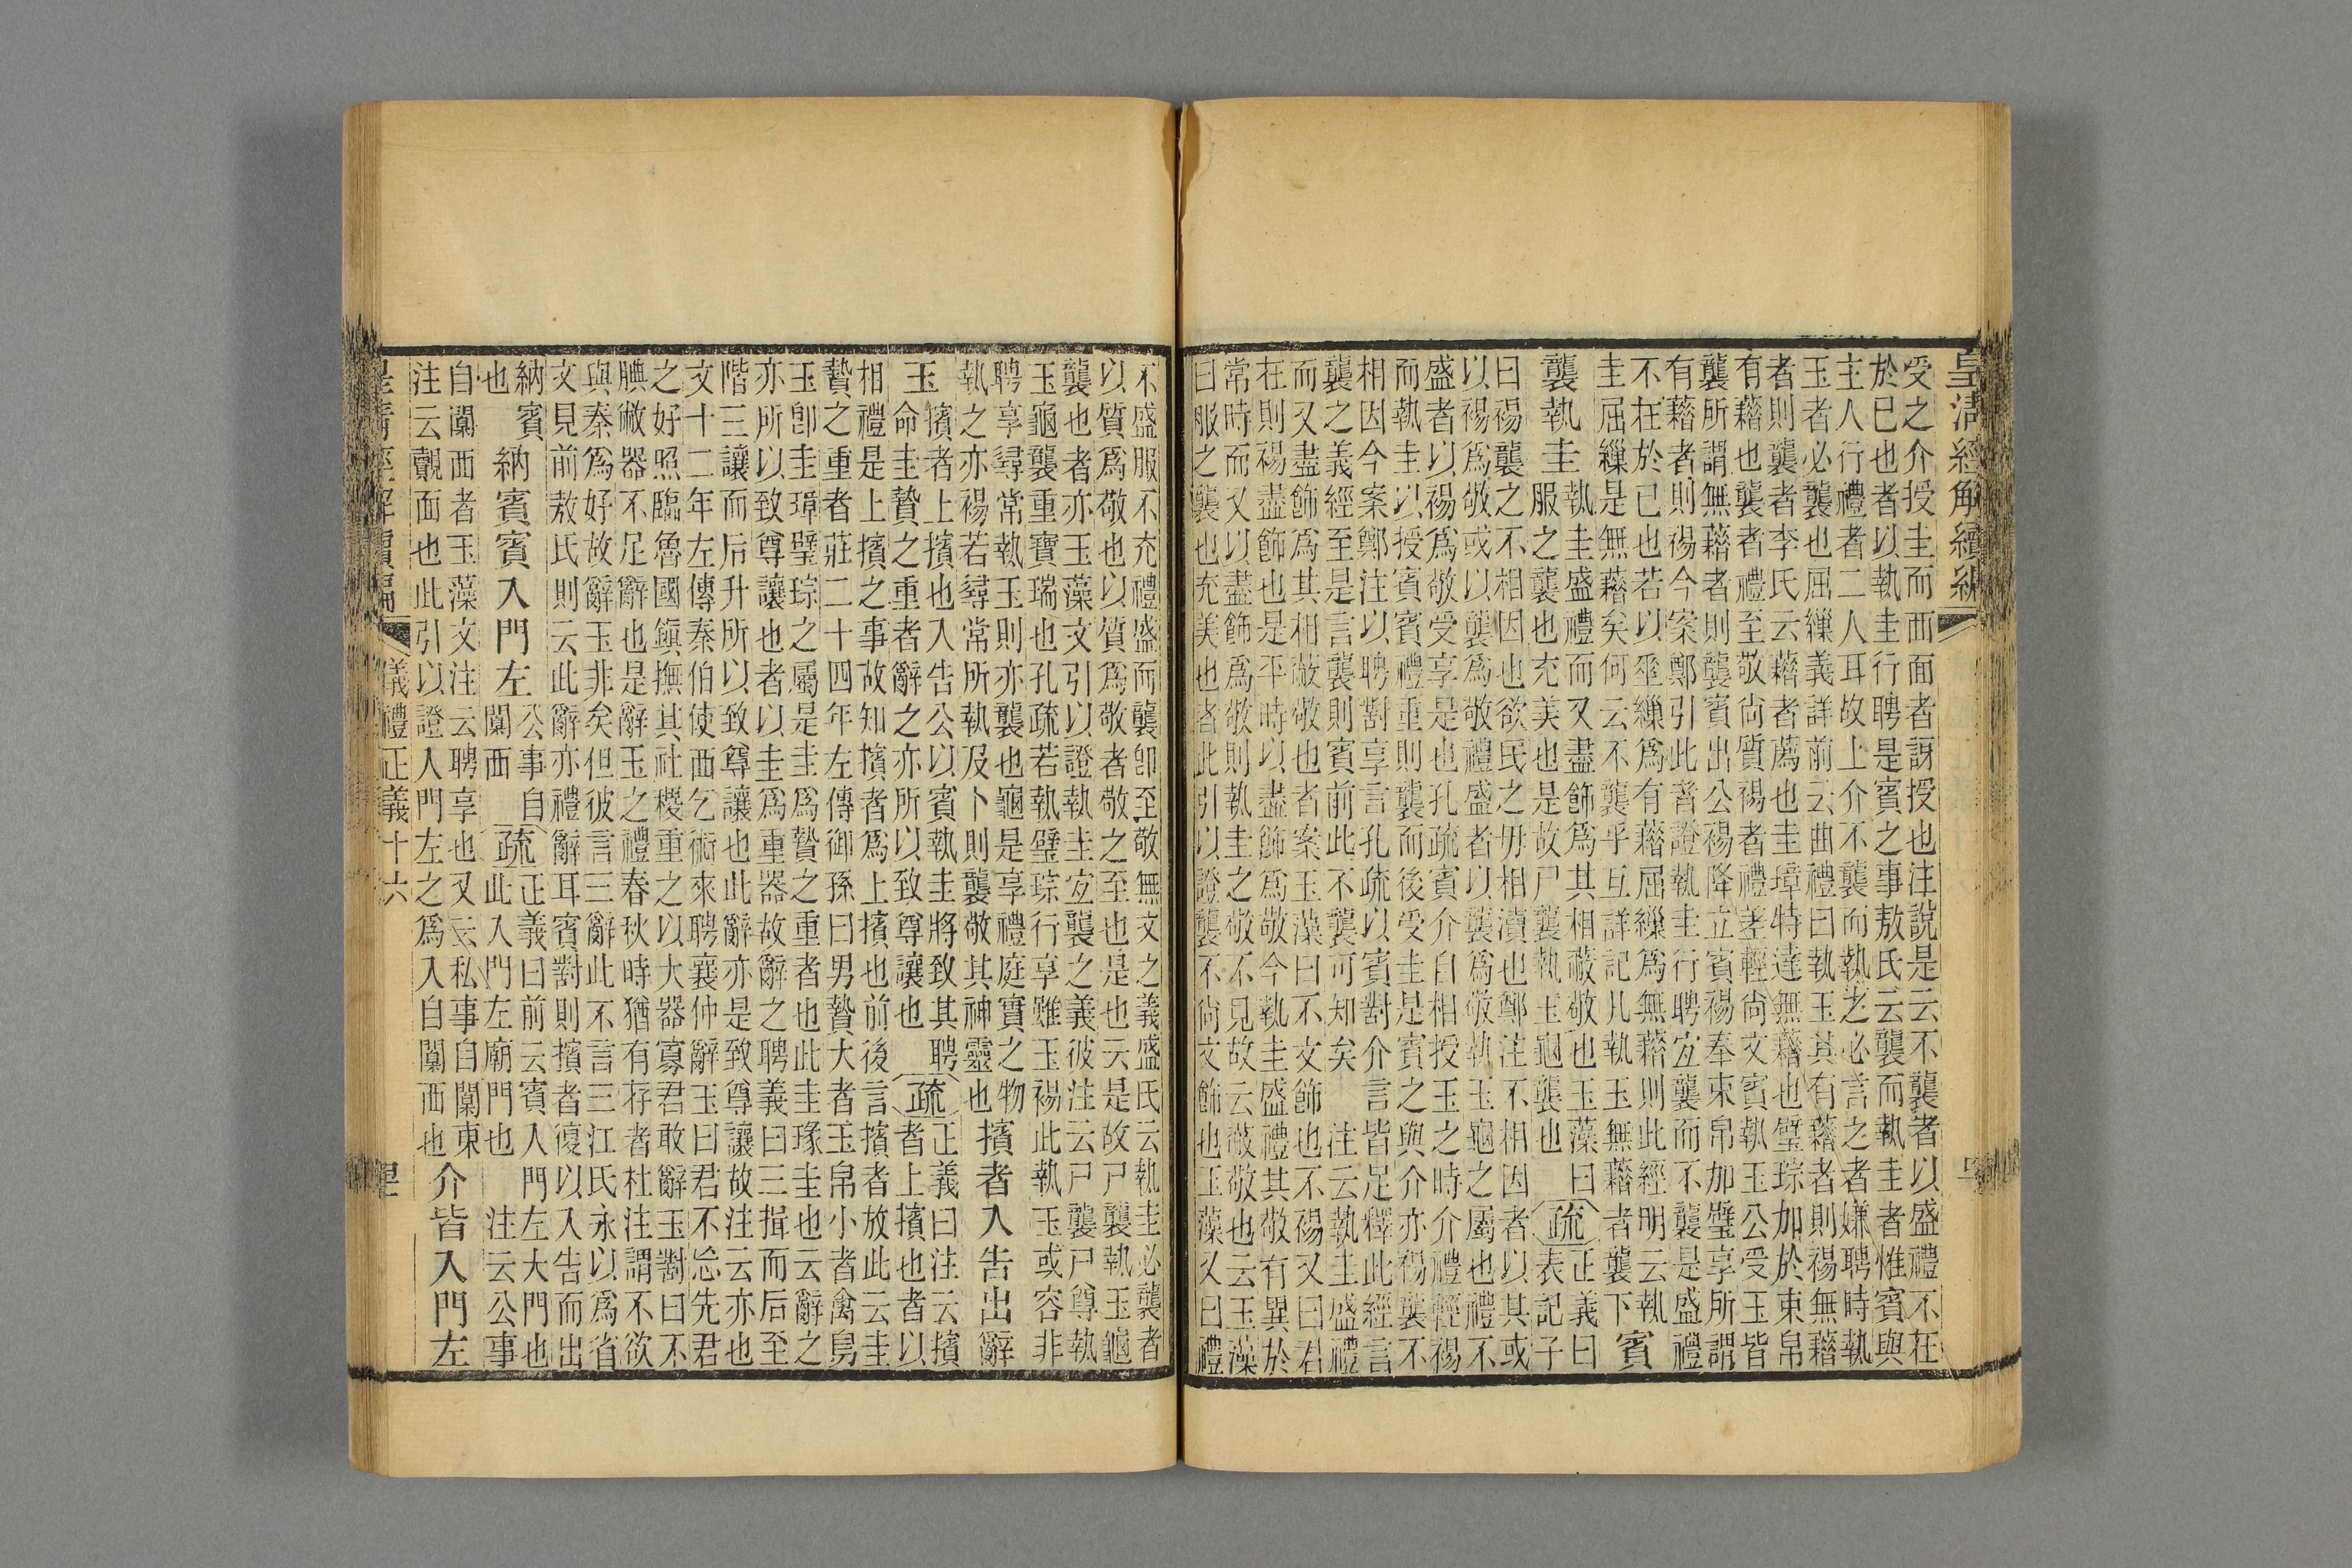 皇清經解續編
受之介授圭而面面者訝授也注說是云不襲者以盛禮不在
於巳也者以執圭行聘是賓之事敖氏云襲而執圭者惟賓與
主人行禮者二人耳故上介不襲而執之必言之者嫌聘時執
玉者必襲也屈繅義詳前云曲禮曰執玉其有藉者則裼無藉
者則襲者李氏云藉者薦也圭璋特達無藉也璧琮加於束帛
有藉也襲者禮至敬尙質裼者禮差輕尙文賓執玉公受玉皆
襲所謂無藉者則襲賓出公裼降立賓裼奉束帛加璧享所謂
有藉者則裼今案鄭引此者證執圭行聘宜襲而不襲是盛禮
不在於已也若以垂繅爲有藉屈繅爲無藉則此經明云執
圭屈繅是無藉矣何云不襲乎互詳記凡執玉無藉者襲下 賓
襲執圭
執圭盛禮而又盡飾爲其相蔽敬也玉藻曰
服之襲也充美也是故尸襲執玉龜襲也
疏
正義曰
表記子
曰裼襲之不相因也欲民之毋相瀆也鄭注不相因者以其或
以裼爲敬或以襲爲敬禮盛者以襲爲敬執玉龜之屬也禮不
盛者以裼爲敬受享是也孔疏賓介自相授玉之時介禮輕裼
而執圭以授賓賓禮重則襲而後受圭是賓之與介亦裼襲不
相因今案鄭注以聘對享言孔疏以賓對介言皆足釋此經言
襲之義經至是言襲則賓前此不襲可知矣 注云執圭盛禮
而又盡飾爲其相蔽敬也者案玉藻曰不文飾也不裼又曰君
在則裼盡飾也是平時以盡飾爲敬今執圭盛禮其敬有異於
常時而又以盡飾爲敬則執圭之敬不見故云蔽敬也云玉藻
曰服之襲也充美也者此引以證襲不尙文飾也玉藻又曰禮
不盛服不充禮盛而襲卽至敬無文之義盛氏云執圭必襲者
以質爲敬也以質爲敬者敬之至也是也云是故尸襲執玉龜
襲也者亦玉藻文引以證執圭宜襲之義彼注云尸襲尸尊執
玉龜襲重寶瑞也孔疏若執璧琮行享雖玉裼此執玉或容非
聘享尋常執玉則亦襲也龜是享禮庭實之物
執之亦裼若尋常所執及卜則襲敬其神靈也 擯者入告出辭
玉
擯者上擯也入告公以賓執圭將致其聘
命圭贄之重者辭之亦所以致尊讓也
疏
正義曰注云擯
者上擯也者以
相禮是上擯之事故知擯者爲上擯也前後言擯者放此云圭
贄之重者莊二十四年左傳御孫曰男贄大者玉帛小者禽鳥
玉卽圭璋璧琮之屬是圭爲贄之重者也此圭瑑圭也云辭之
亦所以致尊讓也者以圭爲重器故辭之聘義曰三揖而后至
階三讓而后升所以致尊讓也此辭亦是致尊讓故注云亦也
文十二年左傳秦伯使西乞術來聘襄仲辭玉曰君不忘先君
之好照臨魯國鎭撫其社稷重之以大器寡君敢辭玉對曰不
腆敝器不足辭也是辭玉之禮春秋時猶有存者杜注謂不欲
與秦爲好故辭玉非矣但彼言三辭此不言三江氏永以爲省
文見前敖氏則云此辭亦禮辭耳賓對則擯者復以入告而出
納賓
也
納賓賓入門左
公事自
闑西
疏
正義曰前云賓入門左大門也
此入門左廟門也 注云公事
自闑西者玉藻文注云聘享也又云私事自闑東
注云覿面也此引以證入門左之爲入自闑西也 介皆入門左
皇清經解續編
儀禮正義十六